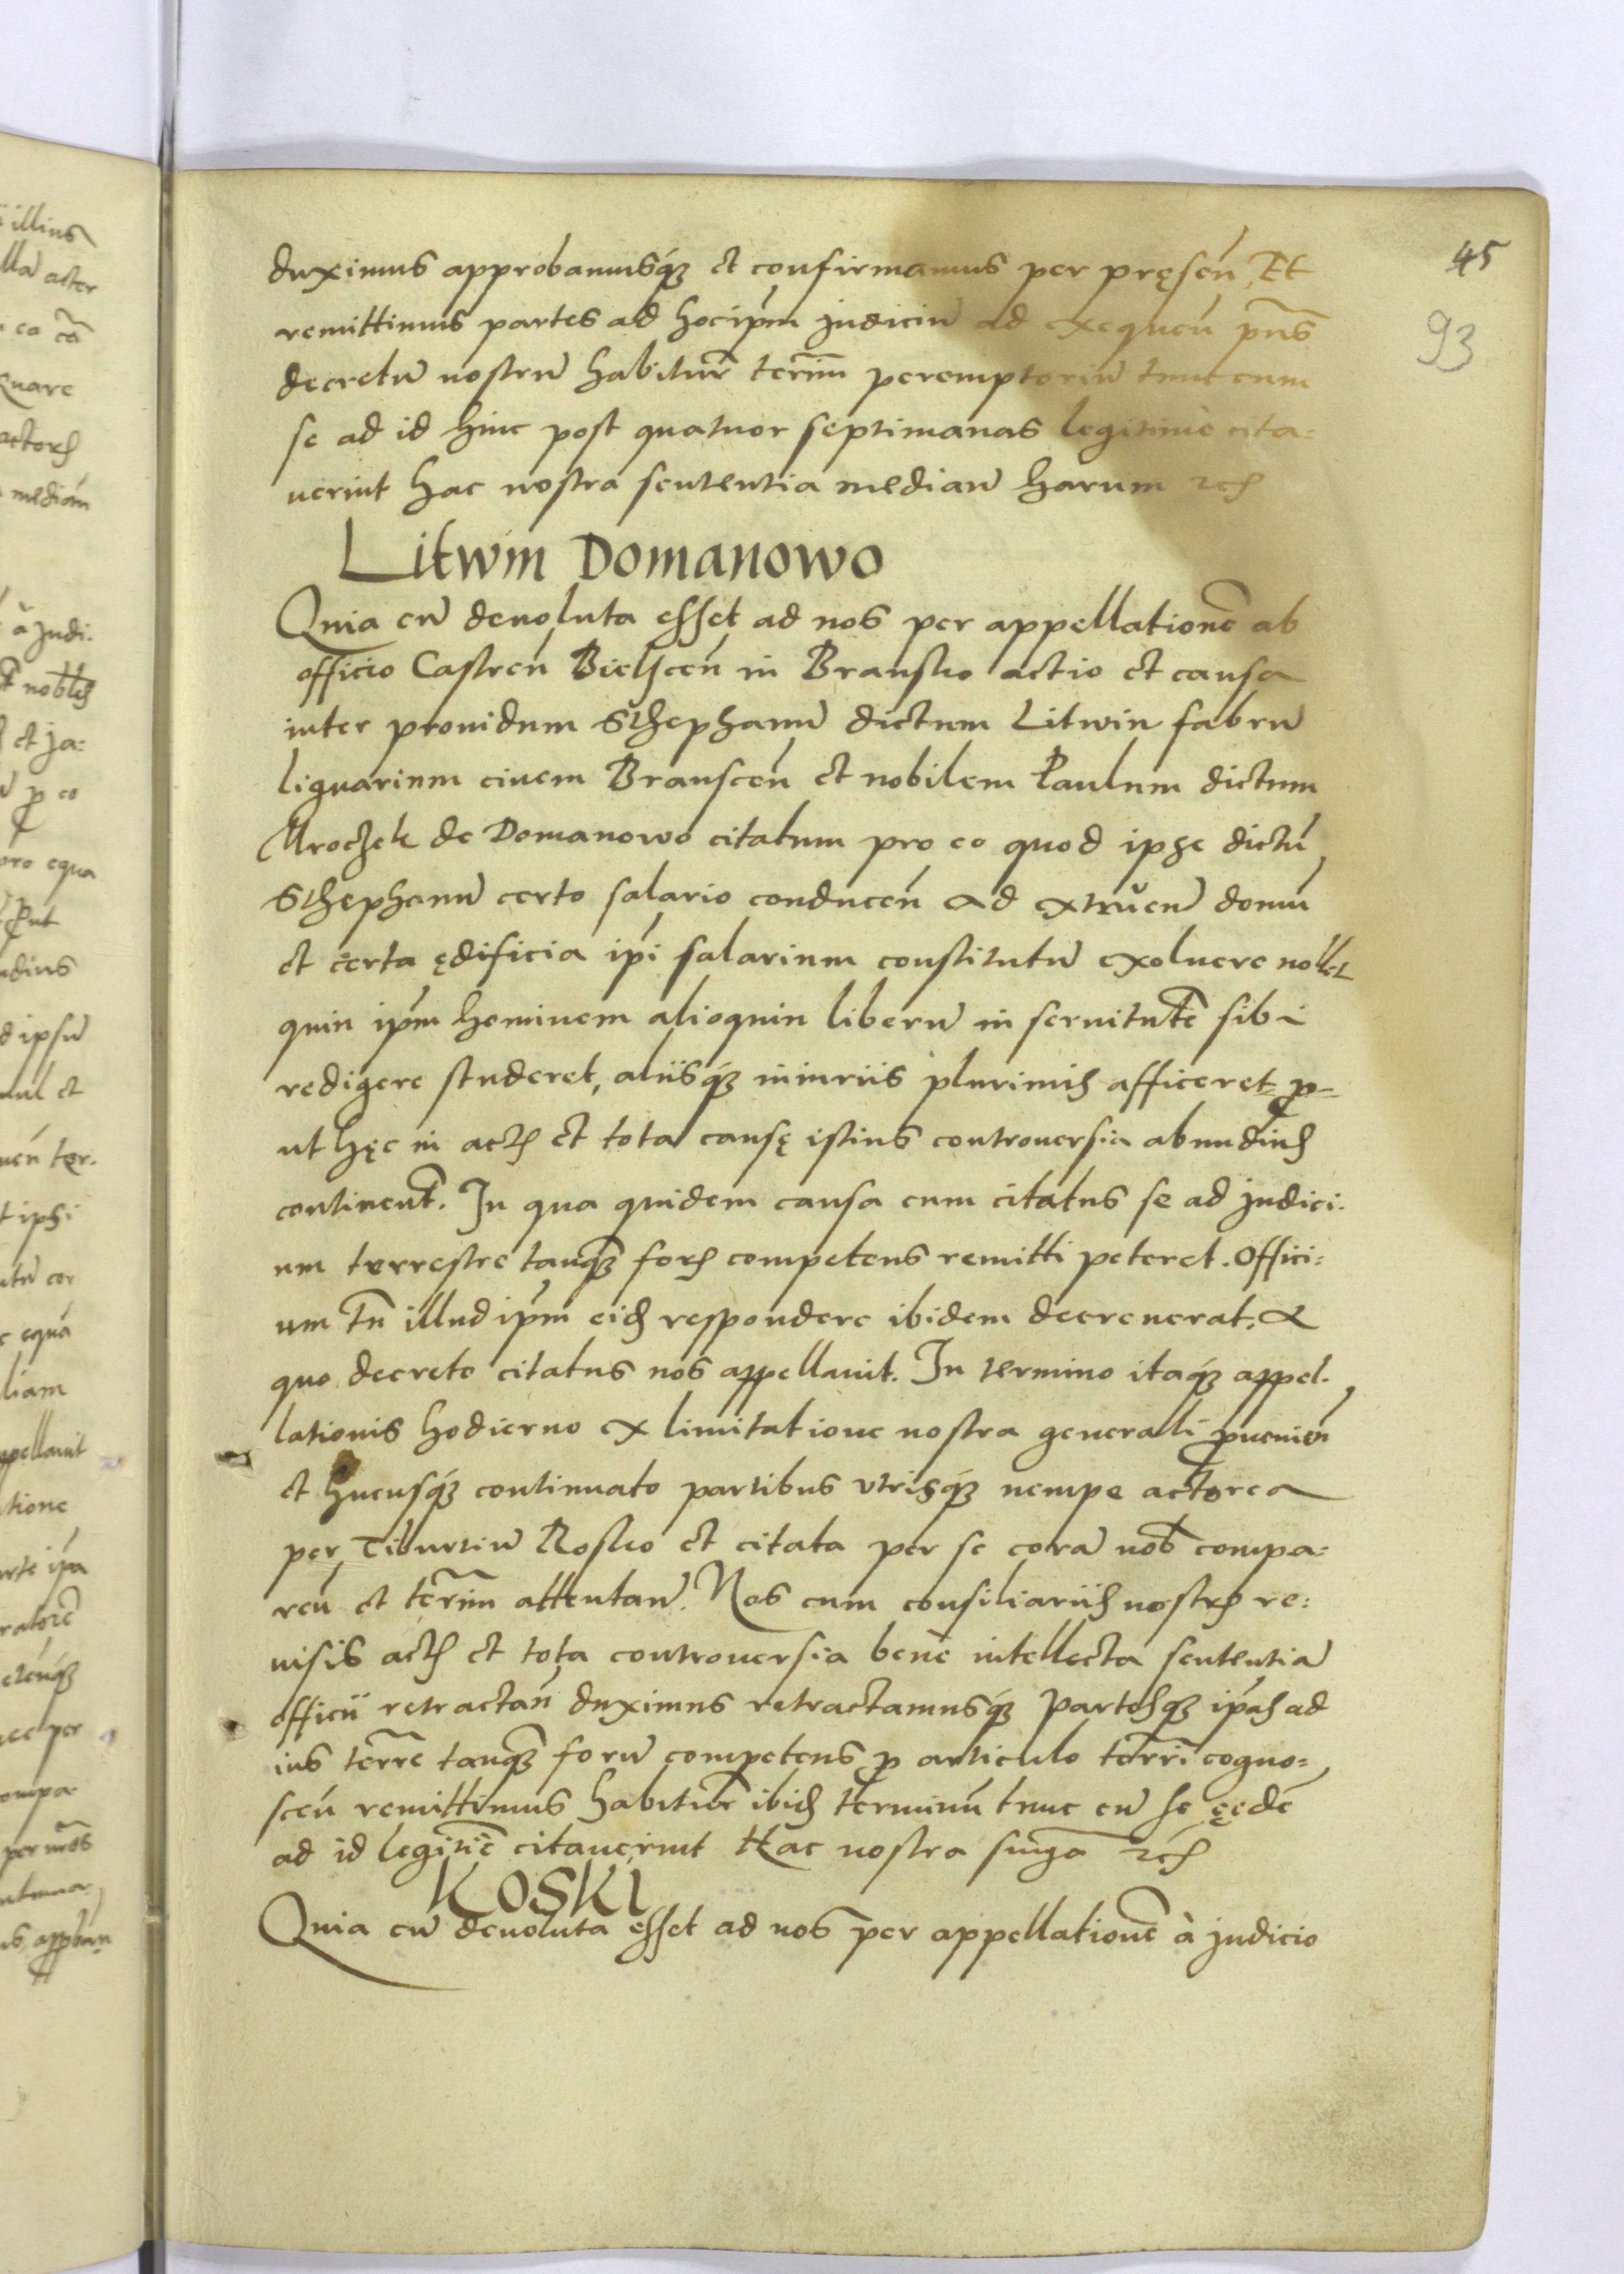 45
93
duximus approbamusq₃ et confirmamus per pręsen̄ Et
remittimus partes ad hocip̄m judiciū ad exequen̄ pn̄s
decretū nostrū habitur̄ term̄ peremptoriū tunc cum
se ad id hinc post quatuor septimanas legitime cita:
uerint hac nostra sententia median̄ harum
Litwin Domanowo
Quia cū deuoluta esset ad nos per appellationē ab
officio Castren̄ Bielscen̄ in Bransko actio et causa
inter prouidum Sthephanū dictum Litwin fabrū
lignarium ciuem Branscen̄ et nobilem Paulum dictum
Mroczek de Domanowo citatum pro eo quod ipse dictū
Sthephanū certo salario conducen̄ ad extruen̄ domū
et certa ędificia ip̄i salarium constitutū exoluere nollet
quin ip̄m hominem alioquin liberū in seruitutē sibi
redigere studeret, aliisq₃ iniuriis plurimis afficeret p̱-
ut hęc in actis et tota causę istius controuersia abundius
continent̄. In qua quidem causa cum citatus se ad judici:
um terrestre tanq₃ forū competens remitti peteret. Offici:
um tn̄ illud ip̄m eid respondere ibidem decreuerat. A
quo decreto citatus nos appellauit. In termino itaq₃ appel.
lationis hodierno ex limitatione nostra generali p̱uenien̄
et hucusq₃ continuato partibus vtrisq₃ nempe actorea
per Tiburtiū Rosko et citata per se corā nob̄ compa:
ren̄ et term̄ attentan̄. Nos cum consiliariis nostris re:
uisis actis et tota controuersia bene intellecta sententiā
officii retractan̄ duximus retractamusq₃ partesq₃ ip̄as ad
ius terr̄e tanq₃ forū competens p̱ articulo terr̄i cogno:
scen̄ remittimus habitur̄ ibid terminū tunc cū se ęędē
ad id legitīe citauerint Hac nostra
KOSKI
Quia cū deuoluta esset ad nos per appellationē à judicio